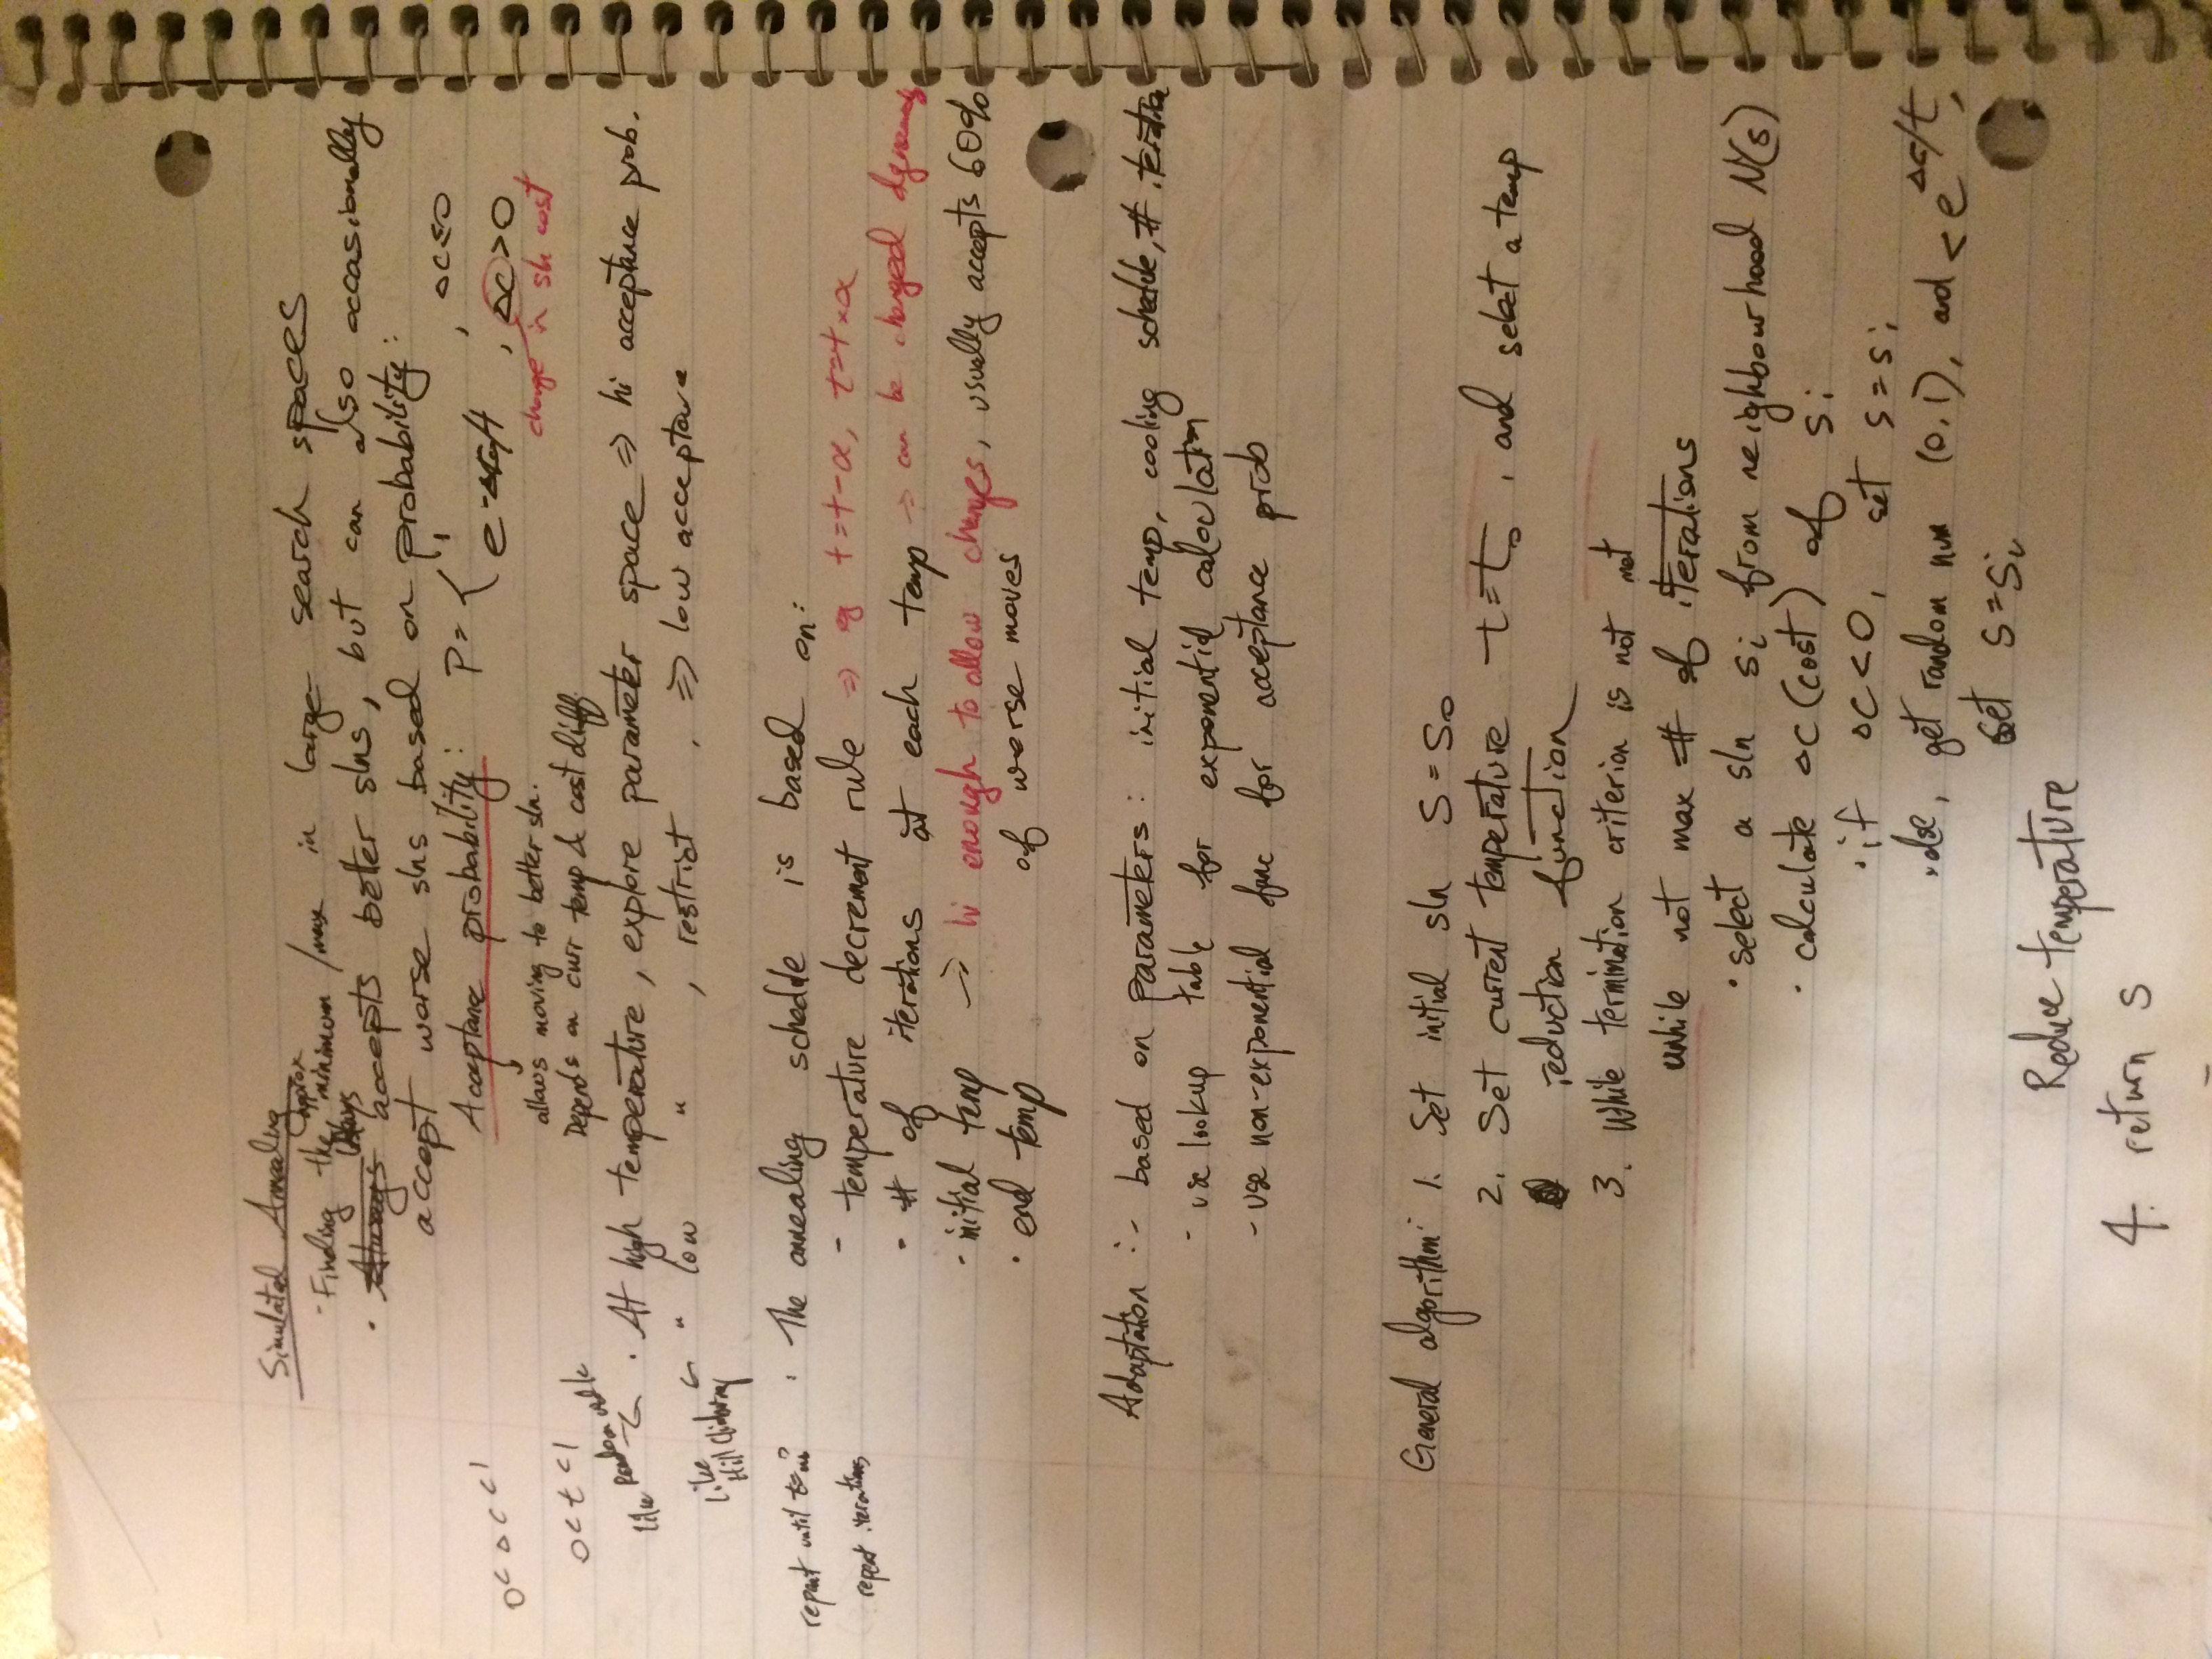 Simulated Annealing
- Finding the approx minimum /max in large search spaces
· Always accepts better slns, but can also occasionally
accept worse slns based on probability:
Acceptance probability: P = { 1 , Δc≤0
e^-Δc/t , Δc>0
change in sln cost
0<Δc<1
allows moving to better sln.
0<t<1
Depends on curr temp & cost diff.
like Random walk
· At high temperature, explore parameter space => hi acceptance prob.
" low " , restrict , => low acceptance
Like
Hill Climbing
repeat until t=
· The annealing schedule is based on:
repeat iterations
- temperature decrement rule => eg t=t-α, t=t×α
· # of iterations at each temp -> can be changed dynamically
· initial temp -> hi enough to allow changes, usually accepts 60%
of worse moves
· end temp
Adaptation :- based on parameters: initial temp, cooling schedule, # iteration
- use lookup table for exponential calculation
- use non-exponential func for acceptance prob
General algorithm: 1. Set initial sln S = S0
2. Set current temperature t=t0, and select a temp
reduction function
3. While termination criterion is not met
while not max # of iterations
· select a sln si from neighbourhood N(s)
· calculate Δc (cost) of si
· if Δc<0, set s=si
· else, get random num (0,1), and < e^Δc/t,
set s=si
Reduce temperature
4. return s